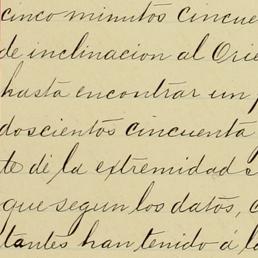 cinco minutos cincue
de inclinacion al Orie
hasta encontrar un p
doscientos cincuenta
te de la extremidad
que segun los datos, c
tantes han tenido á la